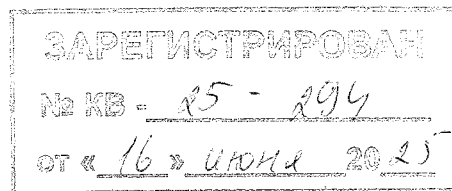 ЗАРЕГИСТРИРОВАН
№ КВ - 25 - 294
от « 16 » июня 20 25